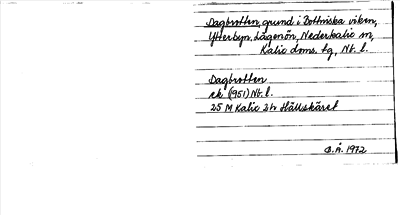 Dagbrotten, grund i Bottniska viken,
Ytterbyn, Lågenön, Nederkalix sn,
Kalix doms. tg, Nb. l.
Dagbrotten
rk (951) Nb. l.
25 M Kalix 2h Hällskäret
B. Å. 1972